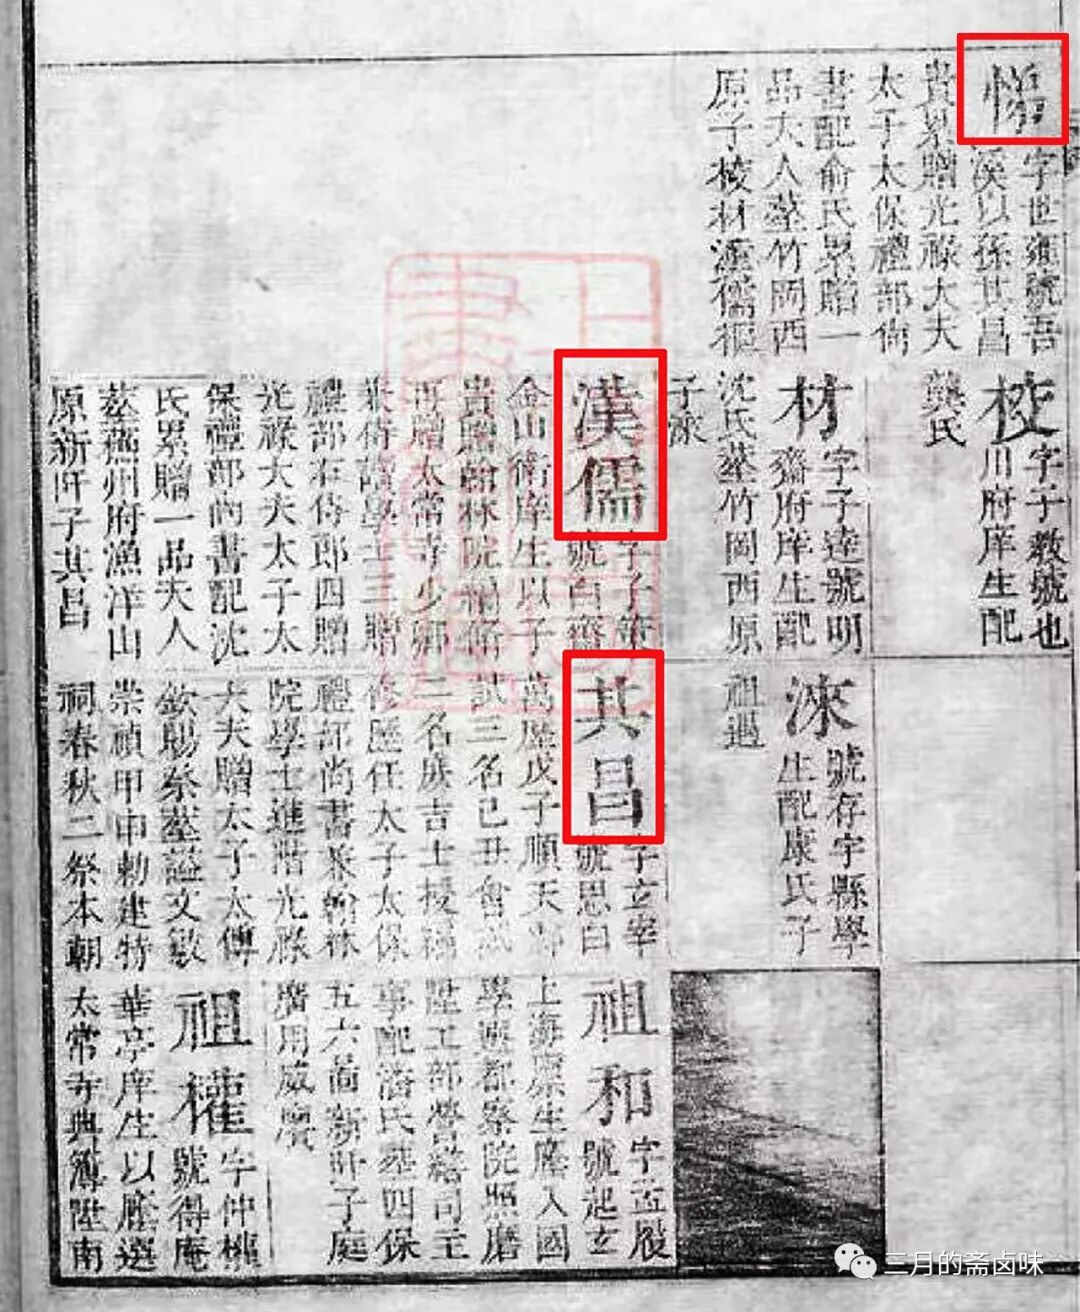 字世雍號吾
溪以孫其昌
貴累贈光祿大夫
太子太保禮部尚
書配俞氏累贈一
品夫人葬竹岡西
原子校材漢儒樞
校
字子教號也
川府庠生配
龔氏
材
字子逵號明
齋府庠生配
沈氏葬竹岡西原
子淶
漢儒
字子
號白齋
金山衛庠生以子
貴贈翰林院編修
再贈太常寺少卿
兼侍讀學士三贈
禮部右侍郎四贈
光祿大夫太子太
保禮部尚書配沈
氏累贈一品夫人
葬蘇州府漁洋山
原新阡子其昌
淶
號存宇縣學
生配康氏子
祖遇
其昌
字玄宰
號思白
萬歷戊子順天鄉
試三名己丑會試
二名庶吉士授編
修歷任太子太保
禮部尚書兼翰林
院學士進階光祿
大夫贈太子太傅
欽賜祭葬謚文敏
崇禎甲申勅建特
祠春秋二祭本朝
祖和
字孟履
號起玄
上海廩生廕入國
學歷都察院照磨
陞工部營繕司主
事配潘氏葬四保
五六啚新阡子庭
廣用威廣
祖權
字仲權
號得庵
華亭庠生以廕選
太常寺典簿陞南
三月的斋卤味